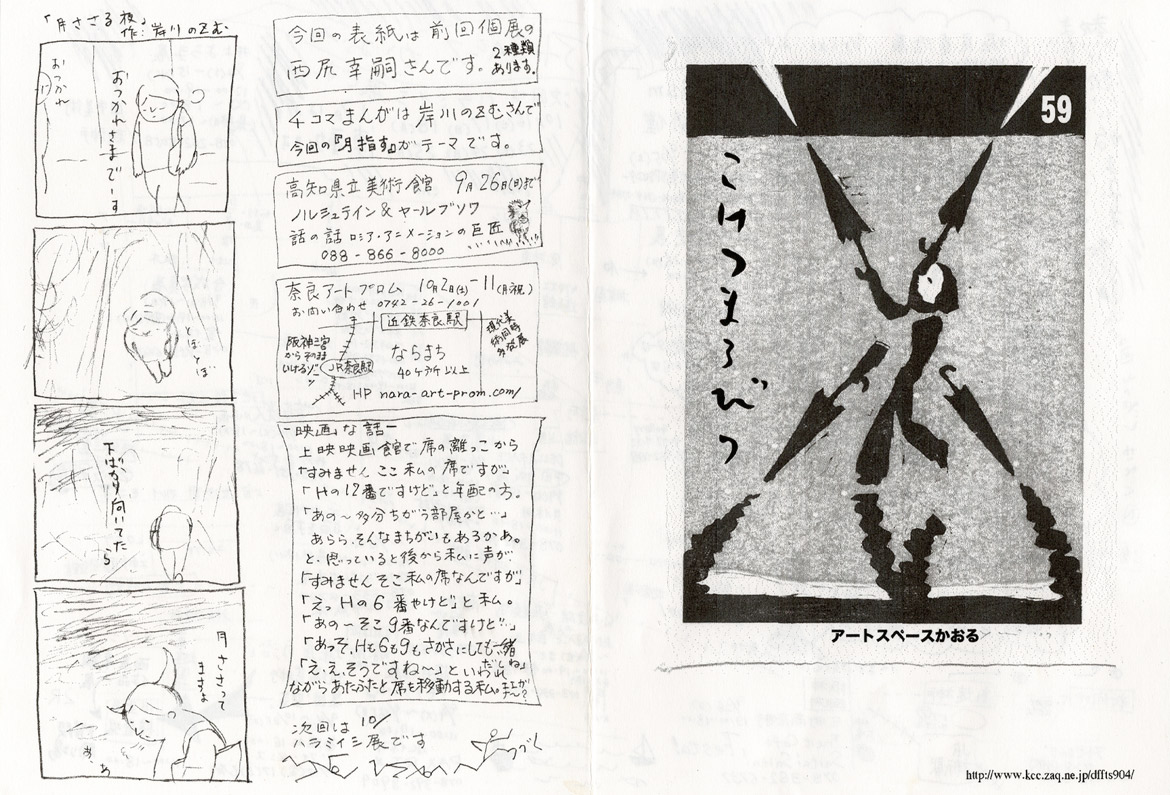 「月ささる夜」
作：岸川のぞむ
おつかれ
おつかれさまでーす
とぼとぼ
下ばかり向いてたら
月ささって
ますよ
あ、
今回の表紙は前回個展の
西尻幸嗣さんです。2種類
あります。
4コマまんがは岸川のぞむさんで
今回の『月指す』がテーマです。
高知県立美術館 9月26日(日)まで
ノルシュテイン&ヤールブソワ
話の話 ロシア・アニメーションの巨匠
088-866-8000
奈良アートプロム 10月2日(土)-11(月・祝)
お問い合わせ 0742-26-1001
近鉄奈良駅
現代美
術同時
多発展
阪神三宮
からそのまま
いけるゾー
JR奈良駅
ならまち
40ヶ所以上
HP nara-art-prom.com/
-映画な話-
上映映画館で席の離っこから
「すみません ここ私の席ですが」
「Hの12番ですけど」と年配の方。
「あの～多分ちがう部屋かと…」
あらら、そんなまちがいもあるかあ。
と、思っていると後から私に声が。
「すみません そこ私の席なんですが」
「えっ Hの6番やけど」と私。
「あの～そこ9番なんですけど…」
「あっそ、Hも6も9もさかさにしても一緒
だしね」
「え、え、そうですね～」といわれ
ながらあたふたと席を移動する私。
次回は 10/
ハラミイシ展です
つづく
59
こけつまろびつ
アートスペースかおる
http://www.kcc.zaq.ne.jp/dffts904/